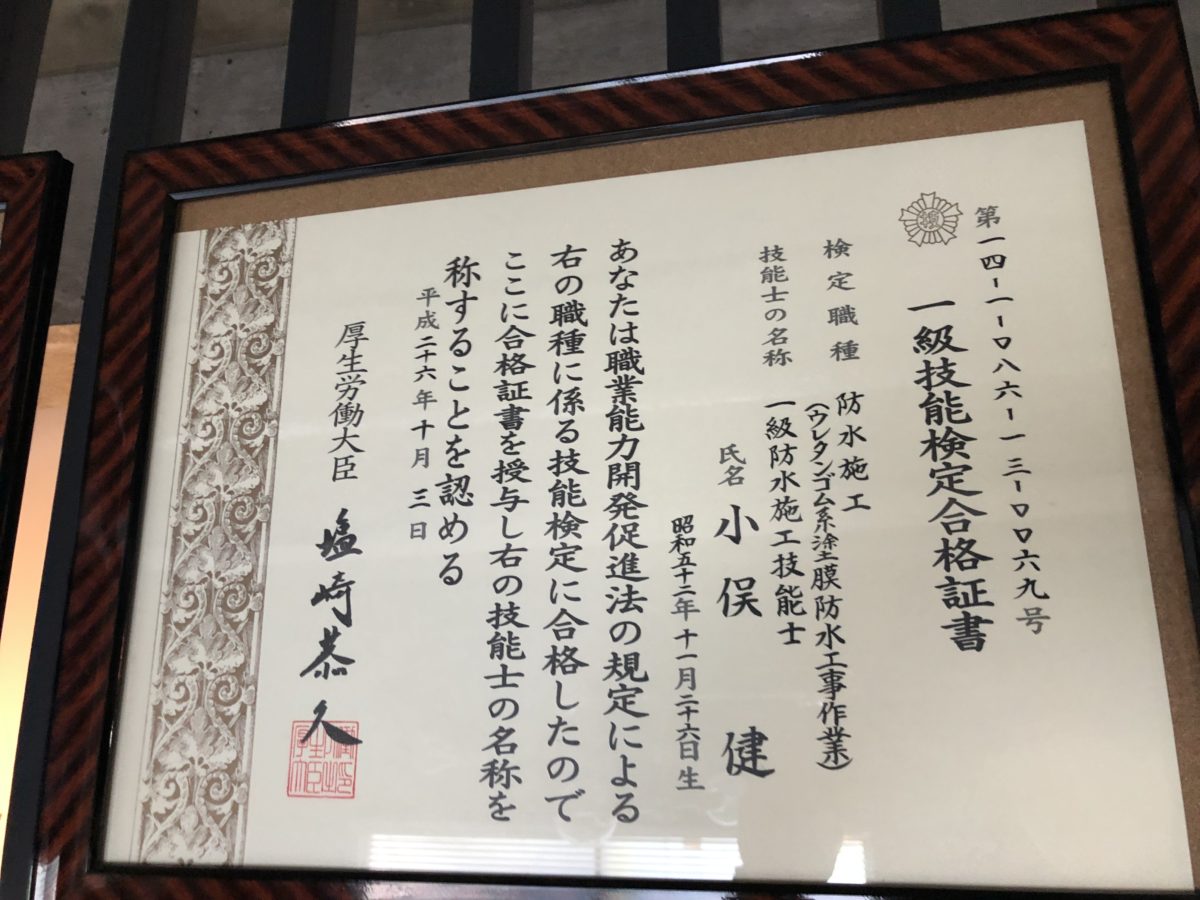 第一四-一-〇八六-一三-〇〇六九号
一級技能検定合格証書
検定職種 防水施工
(ウレタンゴム系塗膜防水工事作業)
技能士の名称 一級防水施工技能士
氏名 小俣 健
昭和五十二年十一月二十六日生
あなたは職業能力開発促進法の規定による
右の職種に係る技能検定に合格したので
ここに合格証書を授与し右の技能士の名称を
称することを認める
平成二十六年十月 三日
厚生労働大臣 塩崎恭久